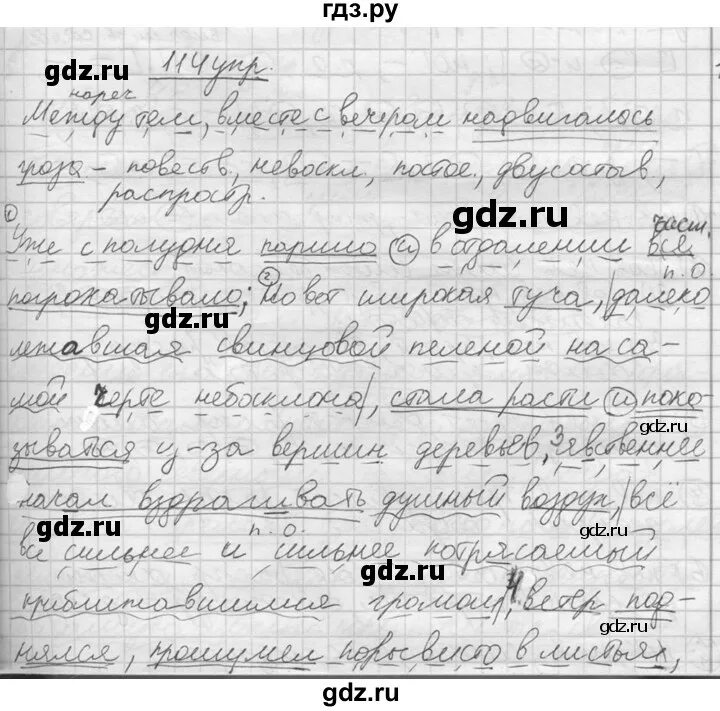 гдз.ру
gdz.ru
114 упр.
нареч
Между тем, вместе с вечером надвигалось
гроза – повеств, невоскл., двусостав,
распростр.
gdz.ru
① част.
Уже с полудня парило и в отдалении всё
② п.о.
погрохатывало; Но вот широкая туча, далеко
gdz.ru
gdz.ru
лежавшая свинцовой пеленой на са-
мой черте небосклона, стала расти и пока-
gdz.ru
зываться из-за вершин деревьев, 3явственнее
начал вздрагивать душный воздух, всё
gdz.ru
gdz.ru
п.о.
всё сильнее и сильнее потрясаемый
gdz.ru
приближавшимся громом, 4 ветер под-
gdz.ru
нялся, прошумел порывисто в листьях,
gdz.ru